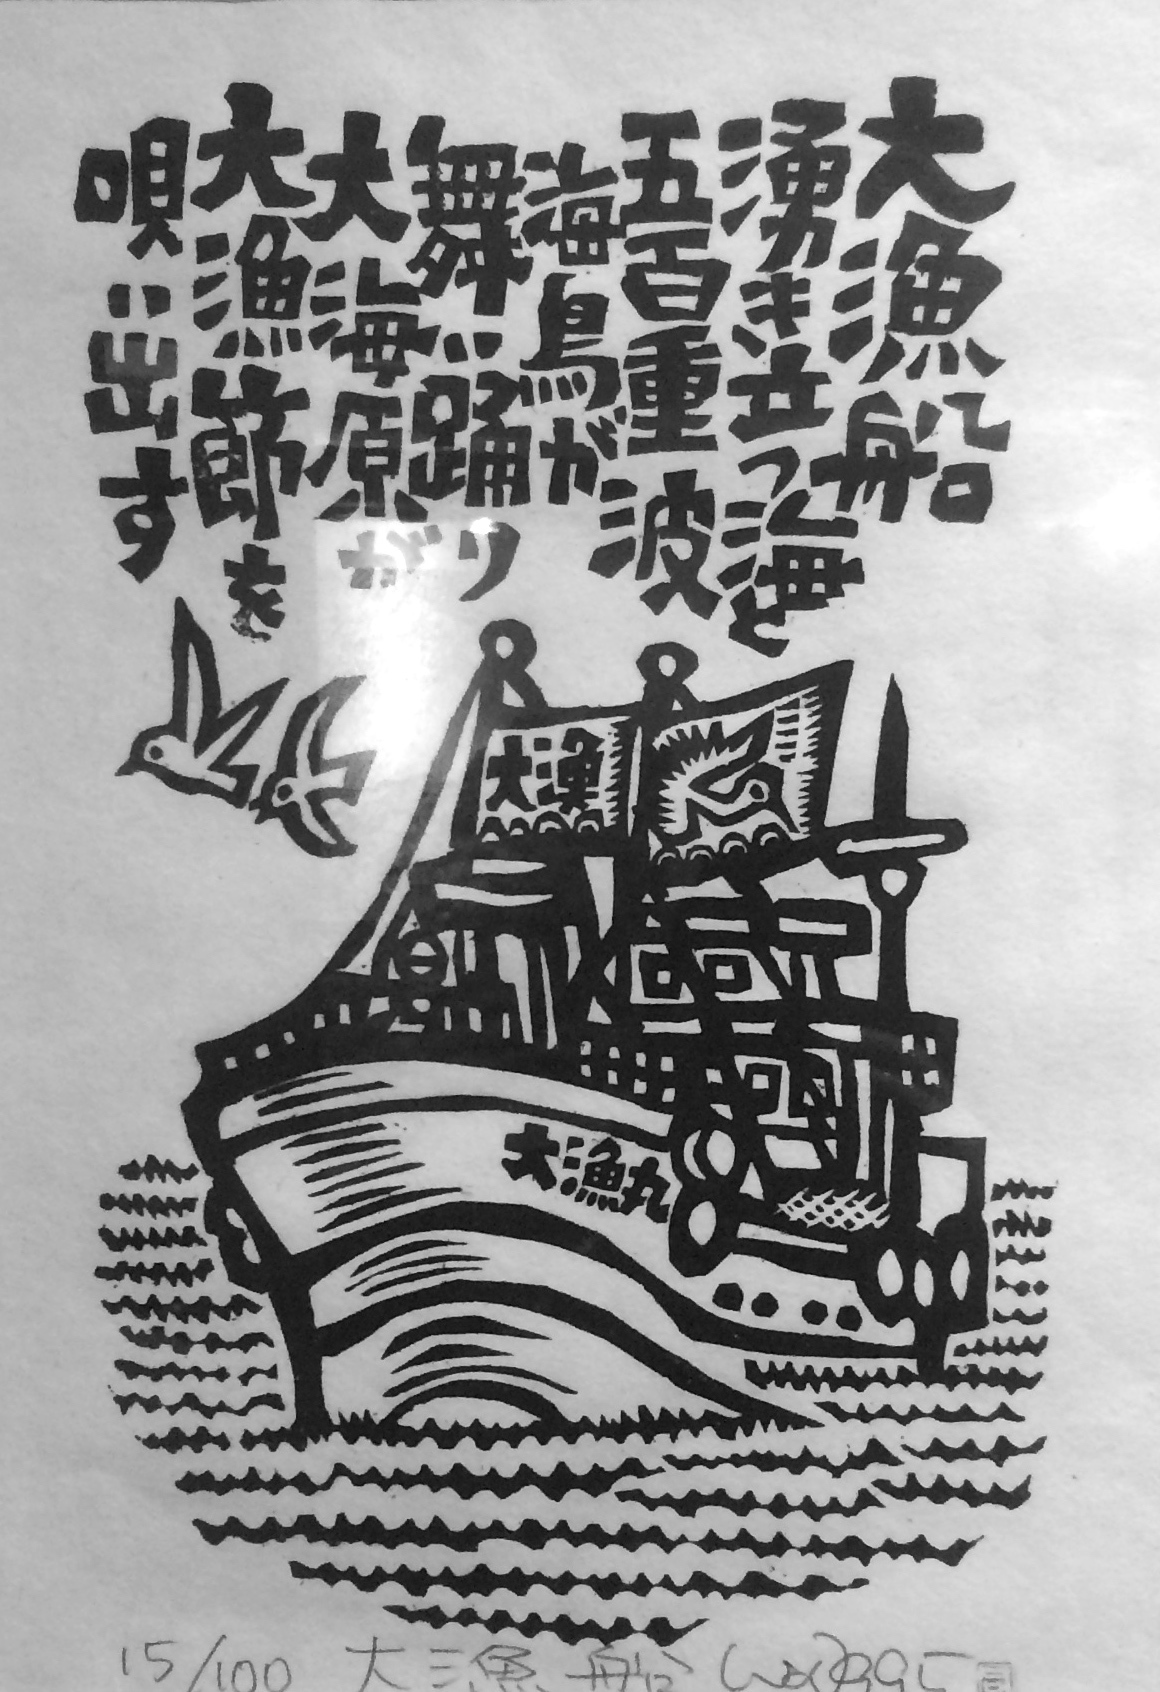 大漁船
湧き立つ海と
五百重波
海鳥が
舞い踊り
大海原が
大漁節を
唄い出す
大漁
大漁丸
15/100 大漁船